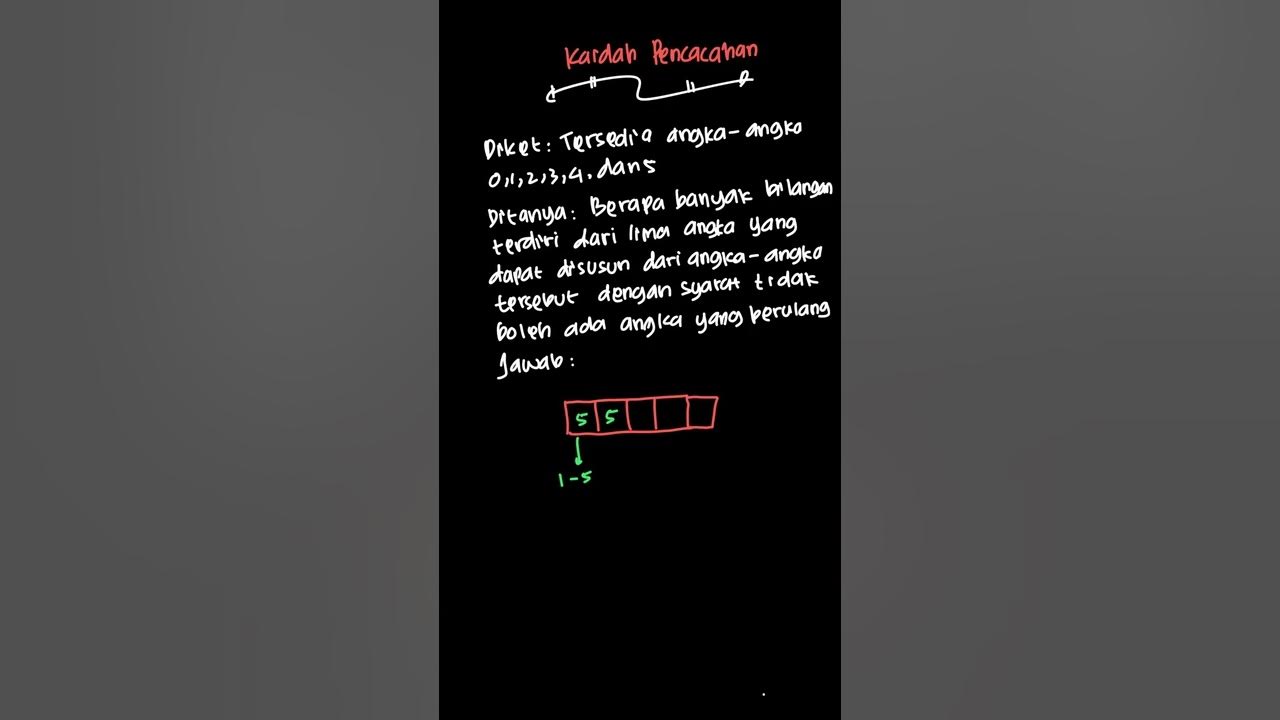 Kaidah Pencacahan
Diket: Tersedia angka-angka
0,1,2,3,4, dan 5
Ditanya: Berapa banyak bilangan
terdiri dari lima angka yang
dapat disusun dari angka-angka
tersebut dengan syarat tidak
boleh ada angka yang berulang
Jawab:
5 5
1-5